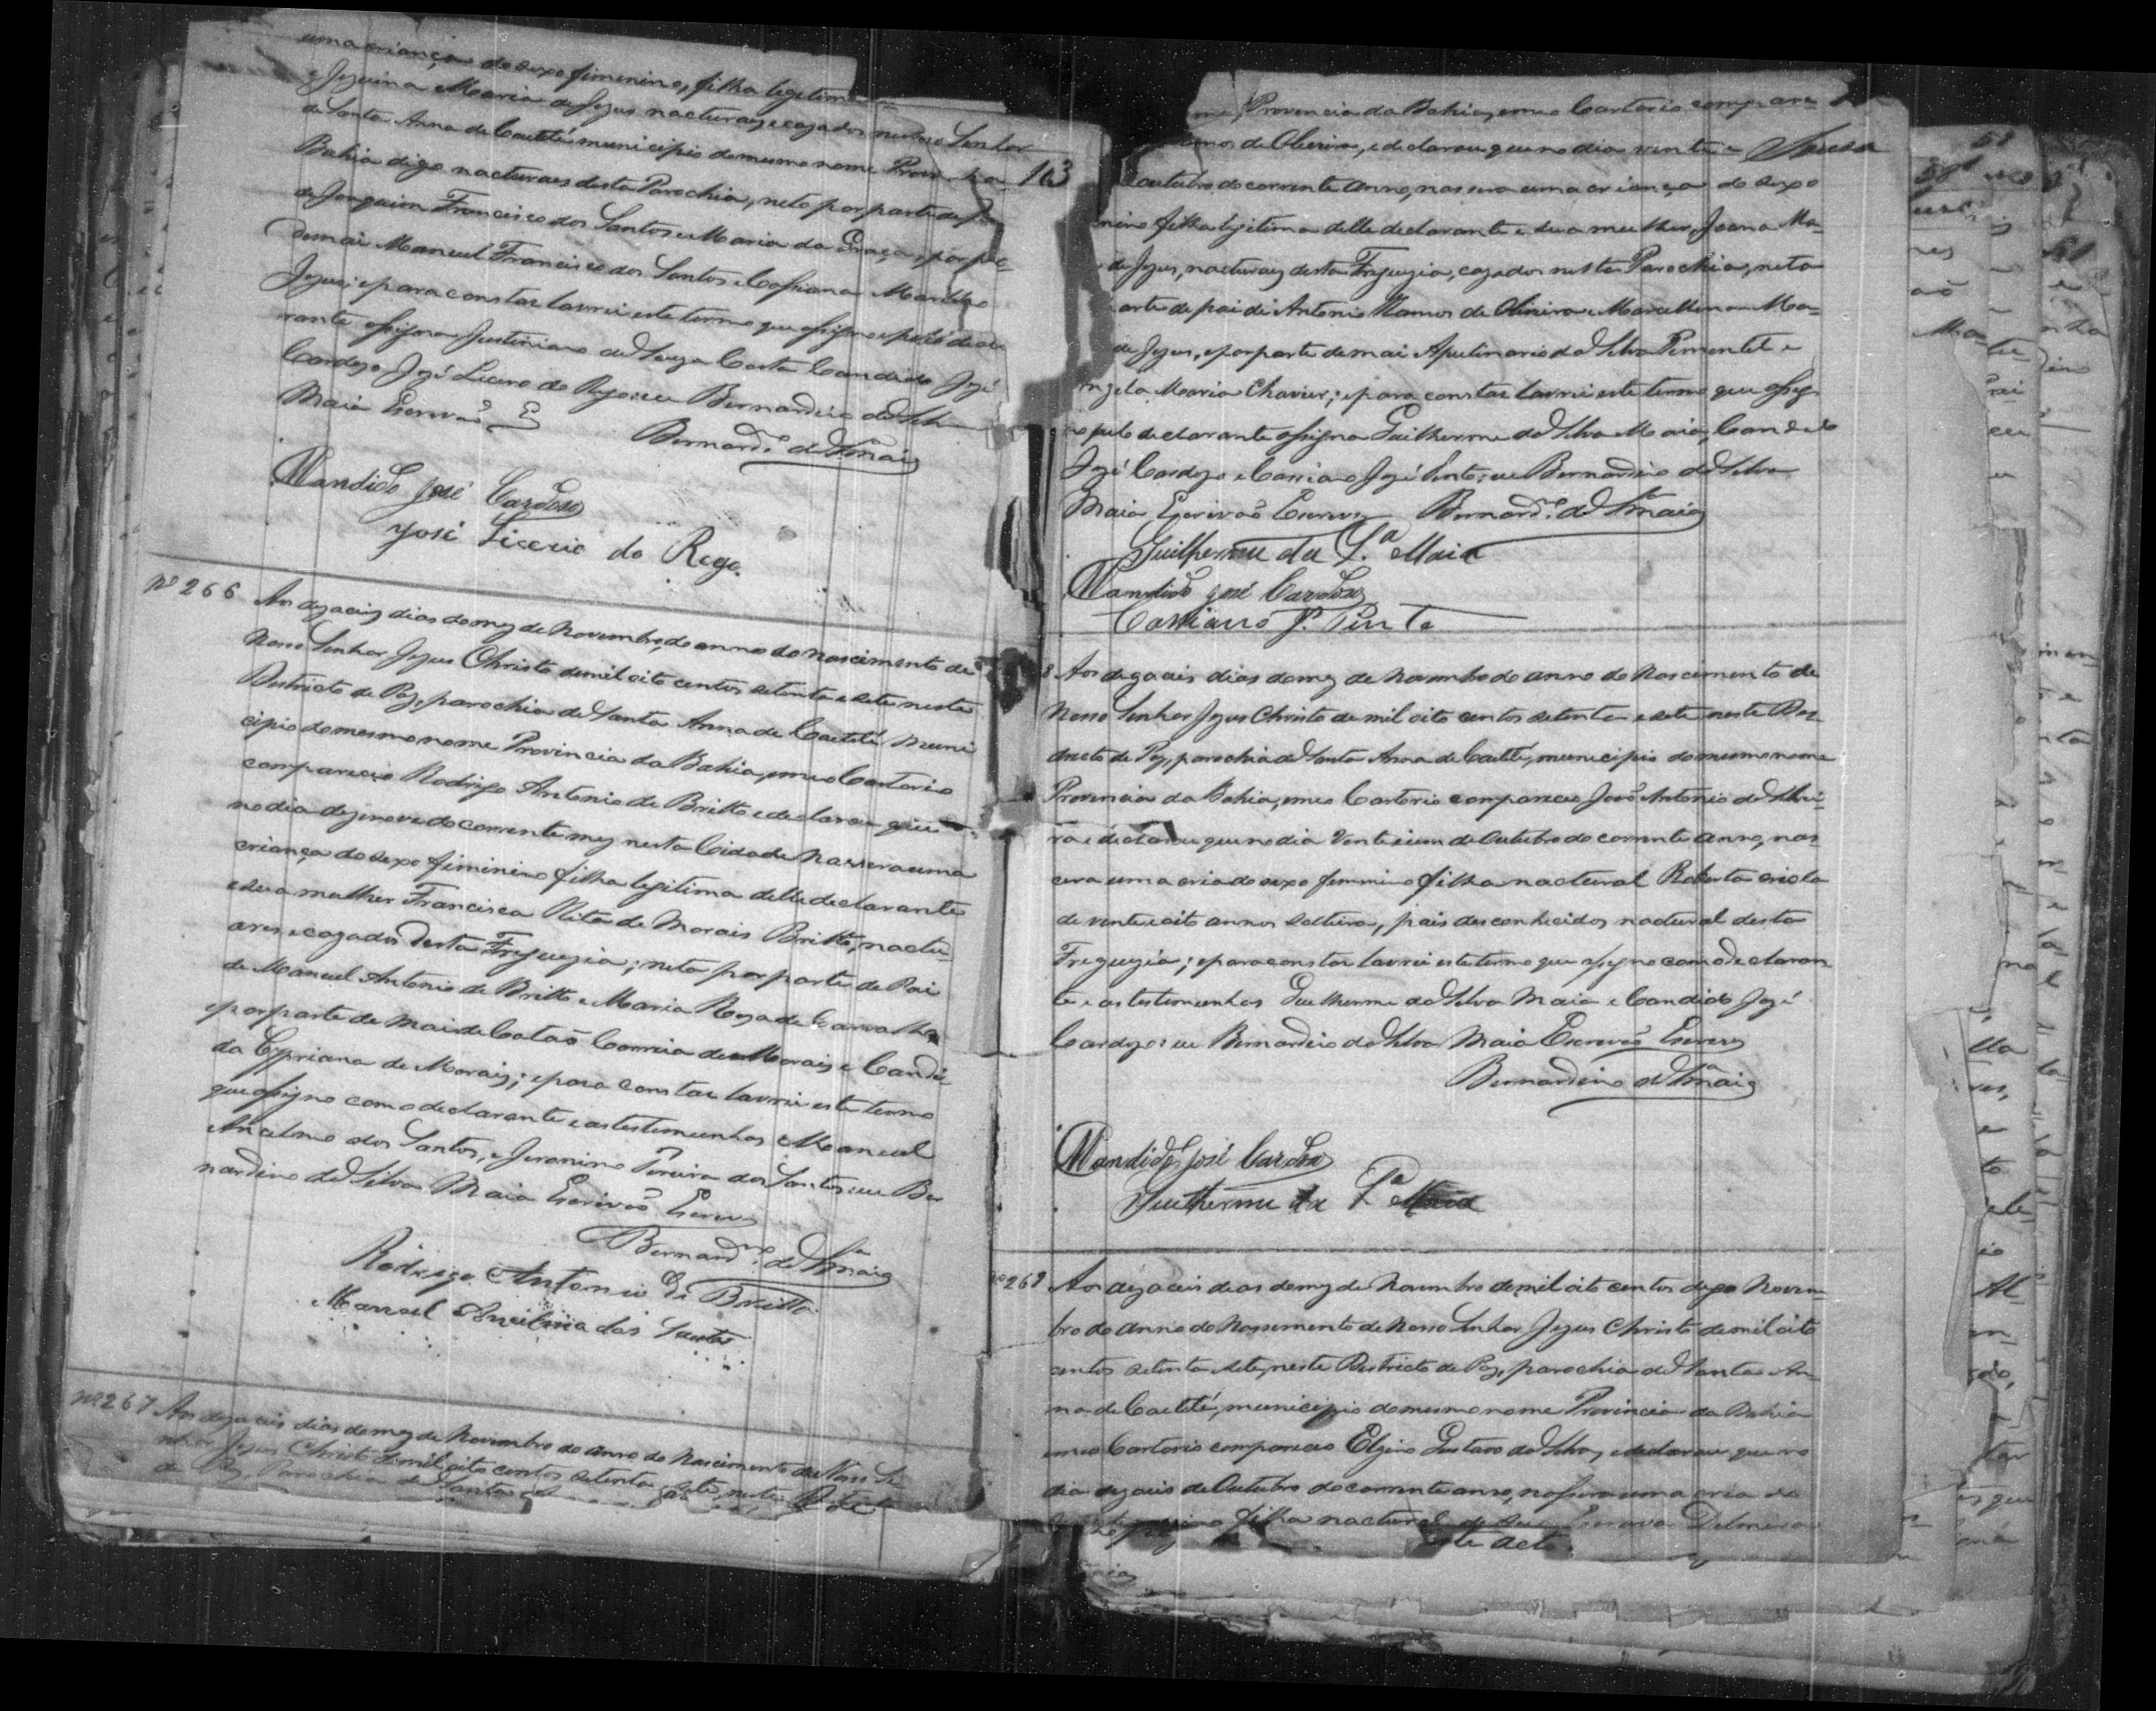 uma criança do sexo fiminino, filha legitima
e Jezuina Maria de Jezus nacturaes e cazados
de Santa Anna de Caetité municipio do mesmo nome
Bahia digo nacturaes desta Parochia, neto por parte de
de Joaquim Francisco dos Santos e Maria da Graça, e por par-
demai Manuel Francisco dos Santos e
Jezus; e para constar lavrei este termo que assigno e pelo decla
rante assigna Justiniano de Souza Costa Candido José
Cardozo, José Licerio do Rego; eu Bernardino da Silva
Maia Escrivaõ
Bernard.no da S.a Maia
Candido José Cardoso
José Licerio do Rego.
Nº 266 Aos dezaceis dias do mez de Novembro, do anno do nascimento de
Nosso Senhor Jezus Christo de mil oito centos setenta e sete neste
Destricto de Paz, parochia de Santa Anna de Caetité, Muni
cipio do mesmo nome Provincia da Bahia, em meo Cartorio
compareceo Rodrigo Antonio de Britto e declarou que
no dia dezenove do corrente mez nesta Cidade nassera uma
criança do sexo fiminino filha legitima delle declarante
e sua mulher Francisca Rita de Morais Britto, nactu-
ares e cazados desta Freguezia; neta por parte de Pai
de Manuel Antonio de Britto e Maria Roza de Carvalho
e por parte de Mai de Cataõ Correia de Morais e Candi
da Cypriana de Morais; e para constar lavrei este termo
que assigno com o declarante e as testemunhas Manuel
Ancelmo dos Santos, e Jeronimo Pereira dos Santos; eu Ber
nardino da Silva Maia Escrivaõ Escrevy
Bernard.no da S.a Maia
Rodrigo Antonio de Britto
Manoel dos Santos
Nº 267 Aos dezaceis dias do mez de Novembro do anno do Nascimento de Nosso Se
nhor Jezus Christo de mil oito centos setenta e sete, neste
de Paz, Parochia de Santa
163
Provincia da Bahia, em meo Cartorio compare-
amos de Oliveira, e declarou que no dia vinte e
outubro do corrente anno, nassera uma criança do sexo
nino filha legitima delle declarante e sua mulher, Joana Ma-
de Jezus, nacturaes desta Freguezia, cazados nesta Parochia, neta
arte de pai de Antonio Ramos de Oliveira e Marcellina Ma-
de Jezus, e por parte de mai Apulinario da Silva Pimentel e
ngela Maria Chavier; e para constar lavrei este termo que assig
no pelo declarante assigna Guilherme da Silva Maia, Candido
José Cardozo e Cassiano José Pinto; eu Bernardino da Silva
Maia Escrivaõ Escrevy Bernard.no da S.a Maia
Guilherme da S.a Maia
Candido José Cardoso
Cassiano J.e Pinto
8 Aos dezaceis dias do mez de Novembro do anno do Nascimento de
Nosso Senhor Jezus Christo de mil oito centos setenta e sete neste Des
tricto de Paz, parochia de Santa Anna de Caetité, municipio do mesmo nome
Provincia da Bahia, em meo Cartorio compareceo Joaõ Antonio da Silvei-
ra e declarou que no dia Vinte e um de Outubro do corrente anno, nas
cera uma cria do sexo femmino filha nactural Roberta criola
de vinte e oito annos solteira, pais desconhecidos nactural desta
Freguezia; e para constar lavrei este termo que assigno com o declaran
te e as testemunhas Guilherme da Silva Maia e Candido José
Cardozo; eu Bernardino da Silva Maia Escrivaõ Escrevy
Bernardino da S.a Maia
Candido José Cardoso
Guilherme da S.a Maia
nº 269 Aos dezaceis dias do mez de Novembro de mil oito centos digo Novem
bro do anno do Nassemento de Nosso Senhor Jezus Christo de mil oito
centos setenta sete, neste Destricto de Paz, parochia de Santa An-
na de Caetité, municipio do mesmo nome Provincia da Bahia
em meo Cartorio compareceo Elzino Gustavo da Silva, e declarou que no
dia dezaceis de Outubro do corrente anno, nassera uma cria do
filha nactural de sua Escrava Delmira